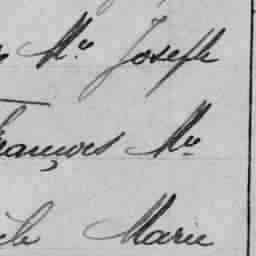 Mie Joseph
François Mie
Marie